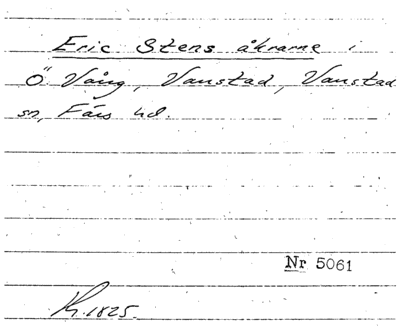 Eric Stens åkrarne i
Ö Vång, Vanstad, Vanstad
sn, Färs hd.
Nr 5061
1825.